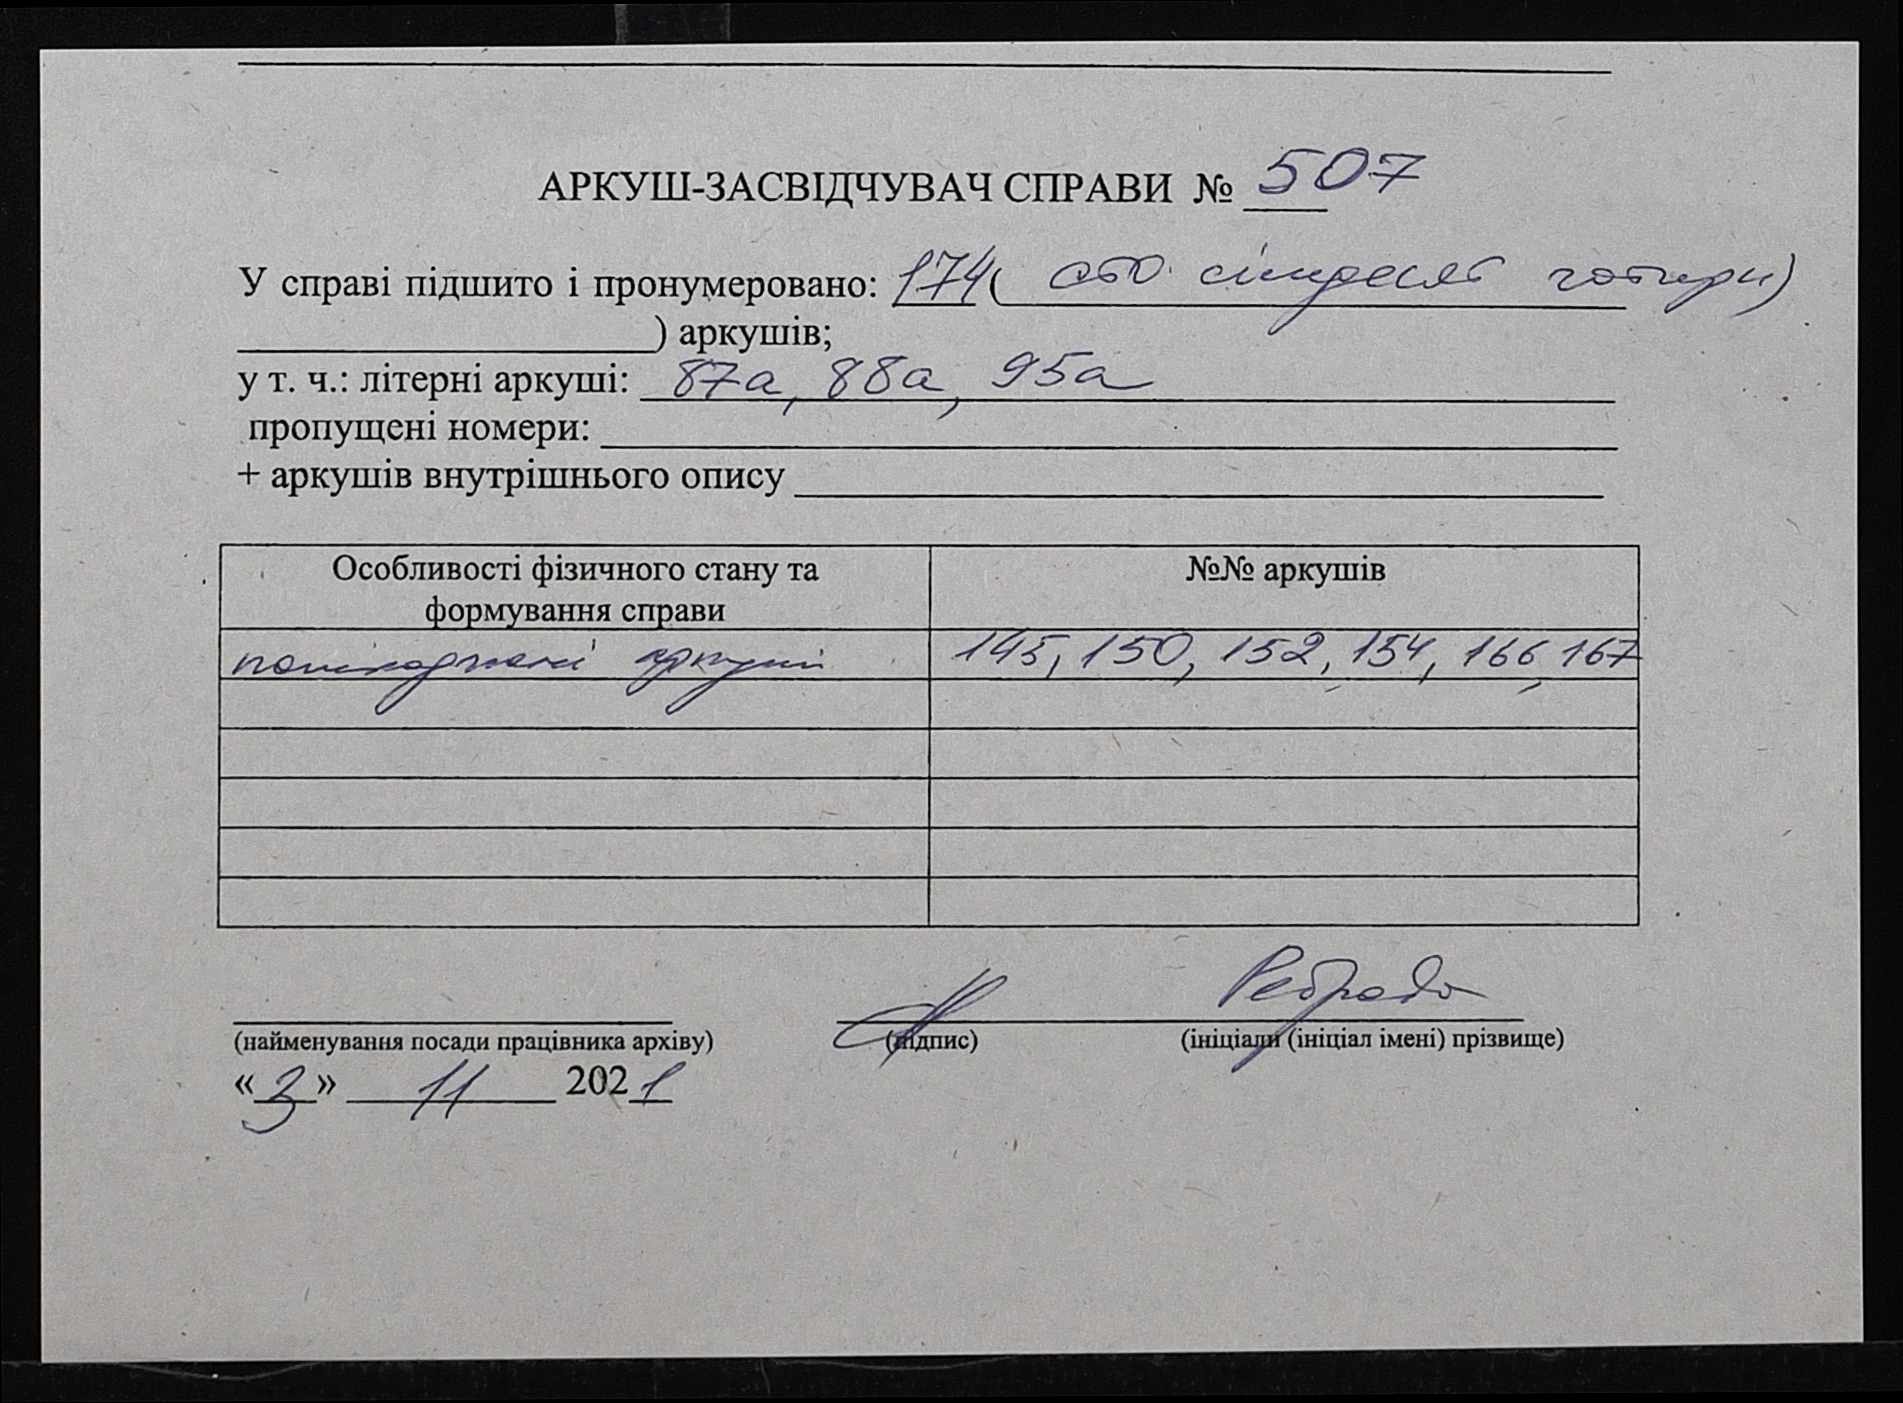 АРКУШ-ЗАСВІДЧУВАЧ СПРАВИ № 507
У справі підшито і пронумеровано: 174 ( сто сімдесят чотири)
) аркушів;
у т. ч.: літерні аркуші: 87а, 88а, 95а
пропущені номери:
+ аркушів внутрішнього опису
Особливості фізичного стану та №№ аркушів
формування справи
пошкоджені аркуші 145, 150, 152, 154, 166, 167
(найменування посади працівника архіву) (підпис) (ініціали (ініціал імені) прізвище)
«3» 11 2021